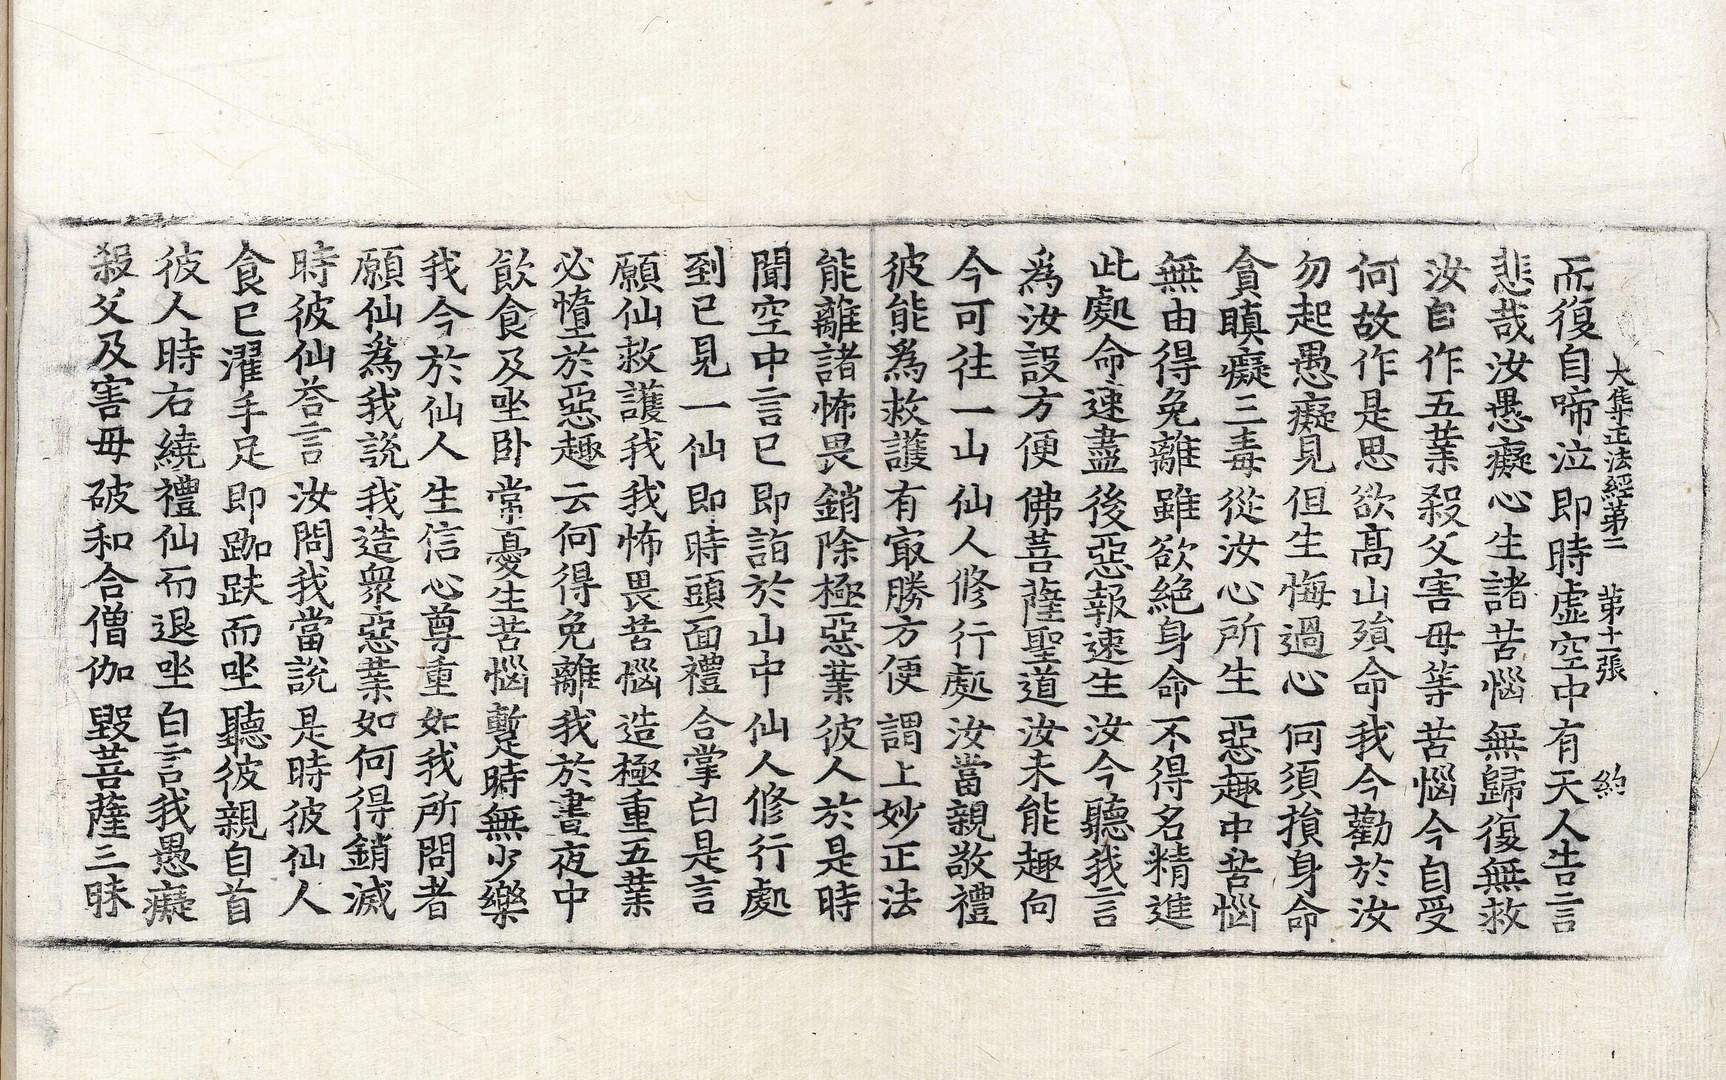 大集正法經第二　第十一張　約
而復自啼泣即時虛空中有天人告言
悲哉汝愚癡心生諸苦惱無歸復無救
汝自作五業殺父害母等苦惱今自受
何故作是思欲髙山殞命我今勸於汝
勿起愚癡見但生悔過心何須損身命
貪瞋癡三毒從汝心所生惡趣中苦惱
無由得免離雖欲絕身命不得名精進
此處命速盡後惡報速生汝今聽我言
爲汝設方便佛菩薩聖道汝未能趣向
今可往一山仙人修行處汝當親敬禮
彼能爲救護有㝡勝方便謂上妙正法
能離諸怖畏銷除極惡業彼人於是時
聞空中言已即詣於山中仙人修行處
到已見一仙即時頭面禮合掌白是言
願仙救護我我怖畏苦惱造極重五業
必墮於惡趣云何得免離我於晝夜中
飲食及坐臥常憂生苦惱蹔時無少樂
我今於仙人生信心尊重如我所問者
願仙爲我說我造衆惡業如何得銷滅
時彼仙荅言汝問我當說是時彼仙人
食已濯手足即跏趺而坐聽彼親自首
彼人時右繞禮仙而退坐白言我愚癡
殺父及害母破和合僧伽毀菩薩三昧